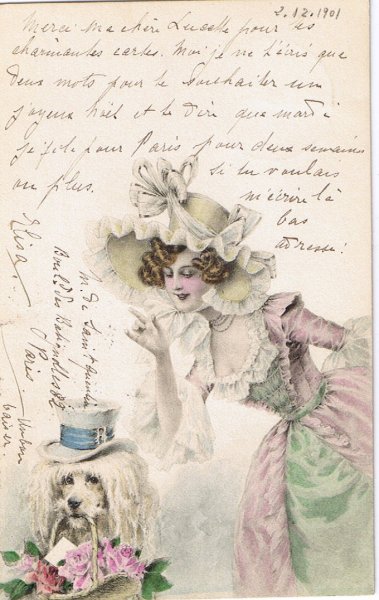 2.12.1901
Merci ma chère Lucette pour tes
charmantes cartes. Moi je ne t'écris que
deux mots pour te souhaiter un
joyeux noël et te dire que mardi
je file pour Paris pour deux semaines
ou plus. si tu voulais
m'écrire là
bas
adresse:
M. de Saint Quentin
Boul. des Batignolles 82
Paris
Un bon
baiser
Elisa